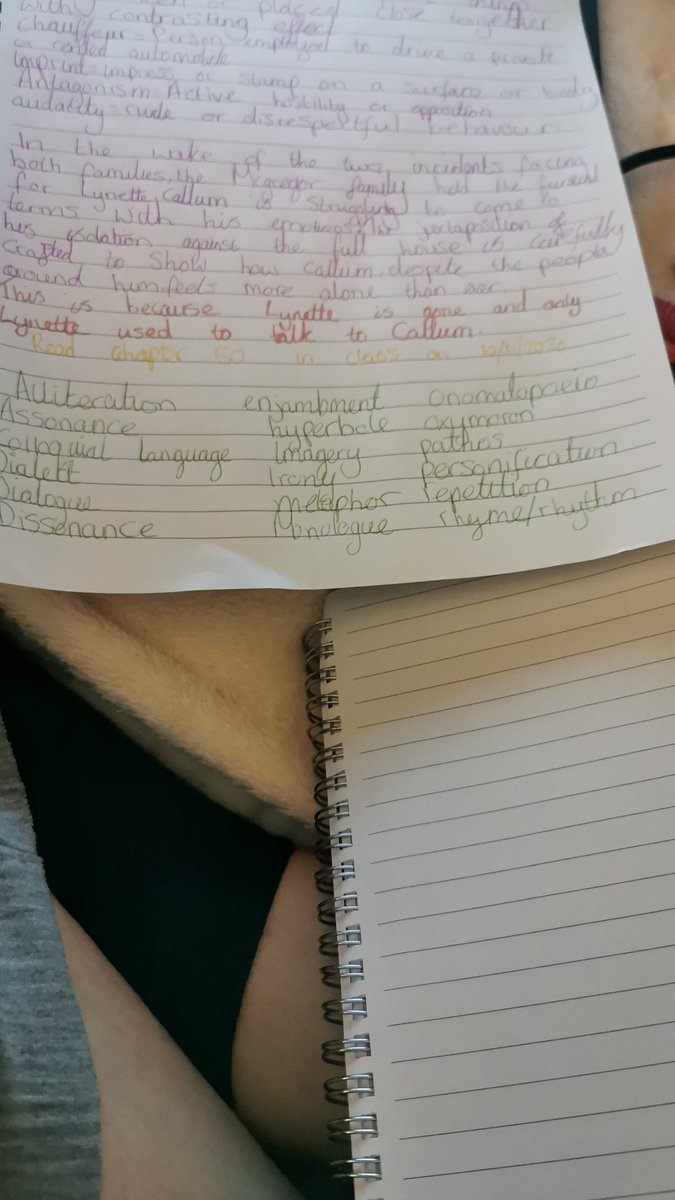 with contrasting effect placed close together
chauffeur = Person employed to drive a private
or called automobile
Imprint = impress or stamp on a surface or body
Antagonism = Active hostility or opposition
audality = rude or disrespectful behavour
In the wake of the two incidents facing
both families, the Mcgregor family held the funeral
for Lynette, Callum is struggling to come to
terms with his emotions. The juxtaposition of
his isolation against the full house is carefully
Crafted to Show how Callum despite the people
around him feels more alone than ever
This is because Lynette is gone and only
Lynette used to talk to Callum.
Read Chapter 50 in class on
Alliteration enjambment onomatopoeia
Assonance hyperbole oxymoron
Colloquial language Imagery pathos
Dialekt Irony personification
Dialogue metaphor repetition
Dissenance Monologue rhyme/rhythm